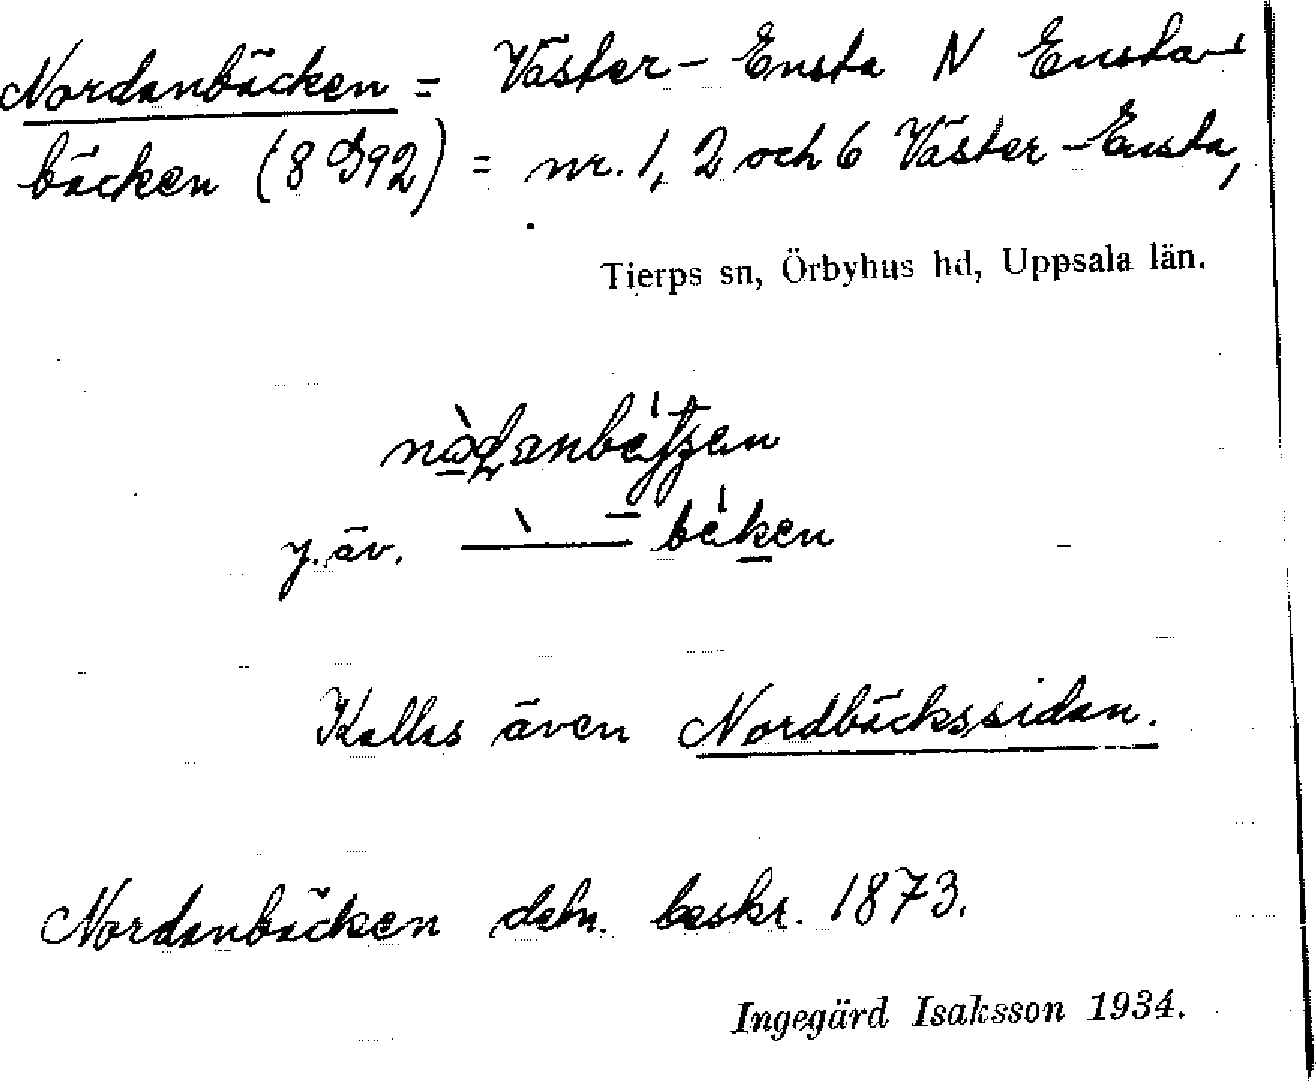 Nordanbäcken = Väster-Ensta N Ensta-
bäcken (8992) = nr. 1, 2 och 6 Väster-Ensta,
Tierps sn, Örbyhus hd, Uppsala län.
y. äv.
Kallas även Nordbäckssidan.
Nordanbäcken dahn. beskr. 1873.
Ingegärd Isaksson 1934.